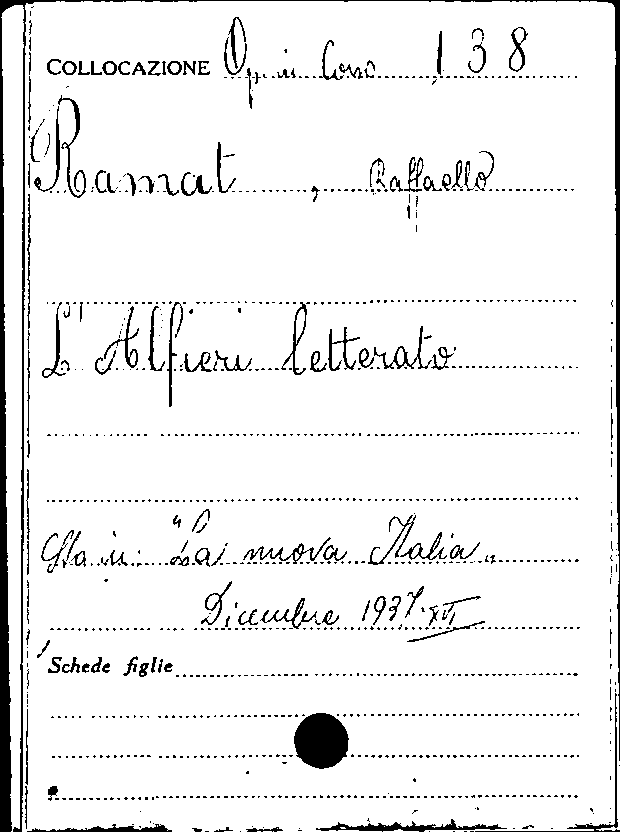 COLLOCAZIONE Op. in Corso 138
Ramat, Raffaello
L'Alfieri letterato
Sta in: "La nuova Italia„
Dicembre 1937-XVI
Schede figlie